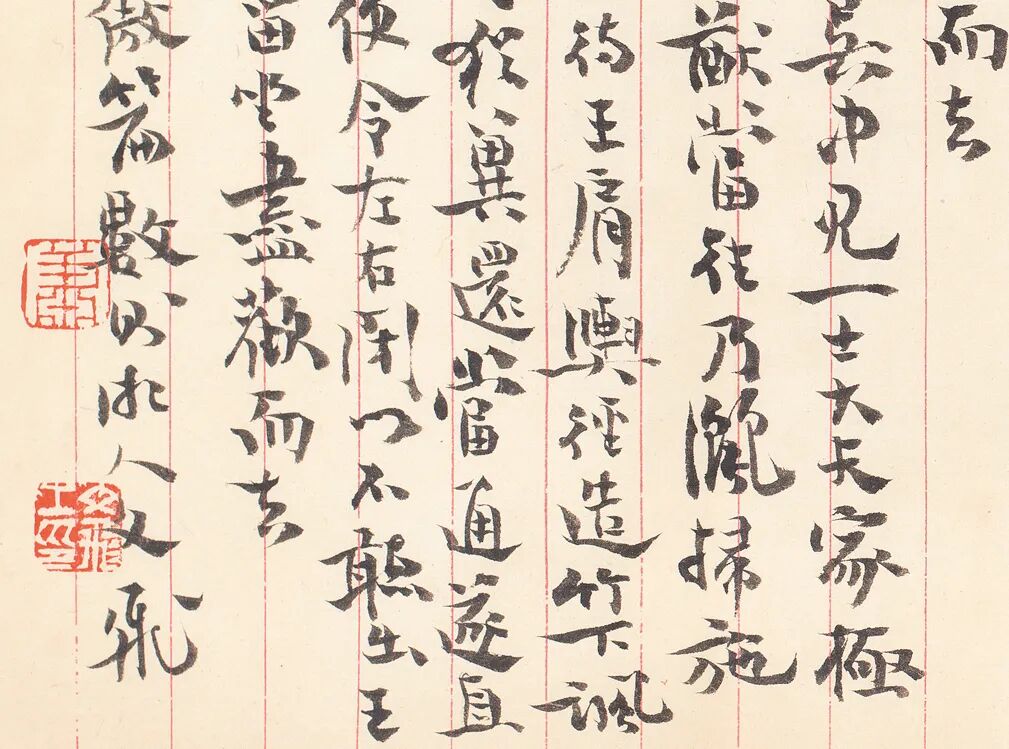 而去
吳中見一士大夫家極
猷當往乃灑掃施
待王肩輿徑造竹下諷
猶冀還當通遂直
便令左右閉門不聽出王
留坐盡歡而去
篇數則 人文飛